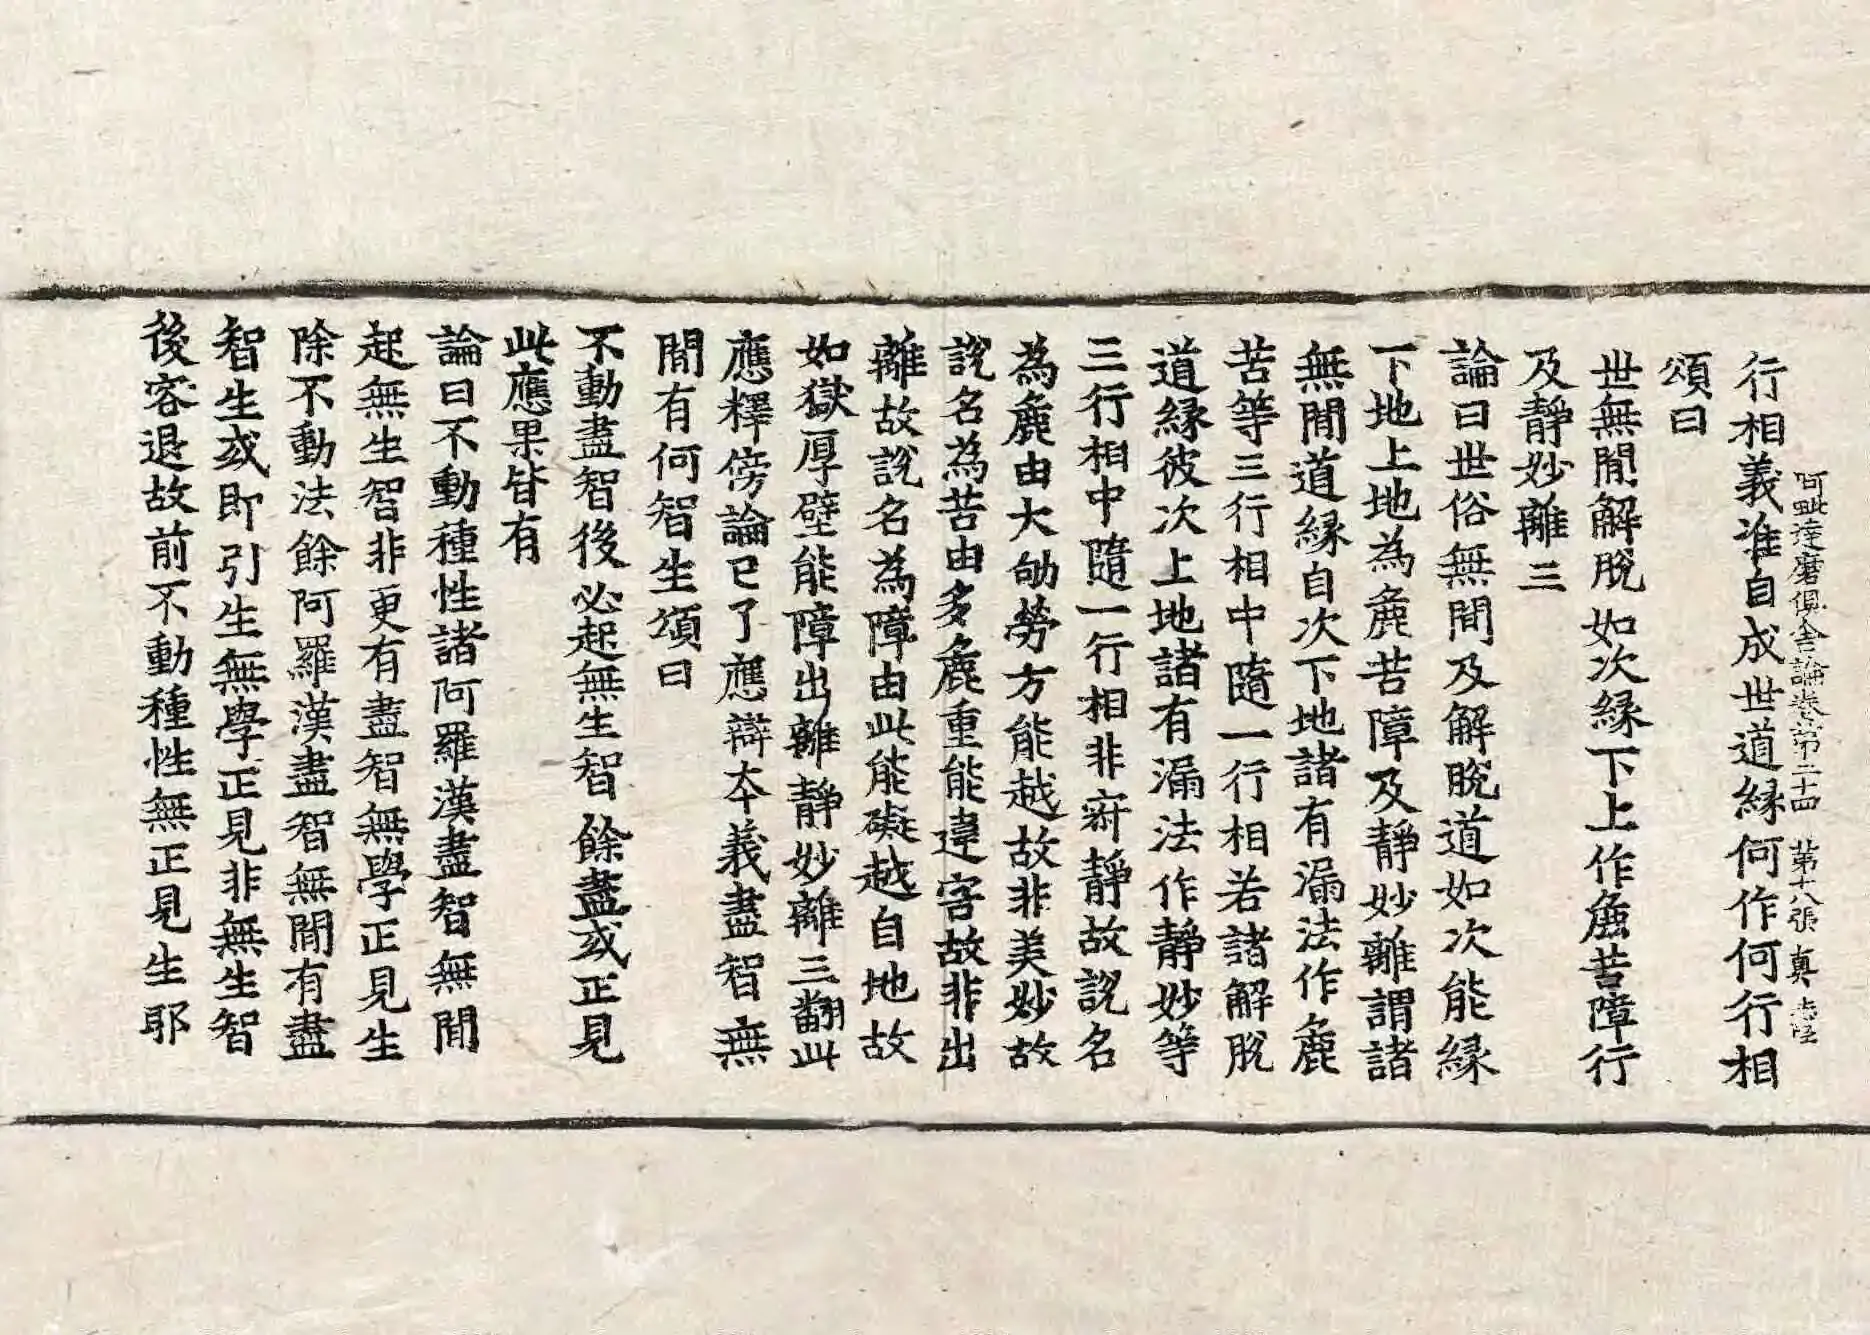 阿毗達磨俱舍論卷第二十四 第十八張 真
行相義准自成世道縁何作何行相
頌曰
世無閒解脫 如次縁下上 作麁苦障行
及靜妙離三
論曰世俗無閒及解脫道如次能縁
下地上地為麁苦障及靜妙離謂諸
無閒道縁自次下地諸有漏法作麁
苦等三行相中隨一行相若諸解脫
道縁彼次上地諸有漏法作靜妙等
三行相中隨一行相非寂靜故說名
為麁由大劬勞方能越故非美妙故
說名為苦由多麁重能違害故非出
離故說名為障由此能礙越自地故
如獄厚壁能障出離靜妙離三翻此
應釋傍論已了應辯本義盡智無
閒有何智生頌曰
不動盡智後 必起無生智 餘盡或正見
此應果皆有
論曰不動種性諸阿羅漢盡智無閒
起無生智非更有盡智無學正見生
除不動法餘阿羅漢盡智無閒有盡
智生或即引生無學正見非無生智
後容退故前不動種性無正見生耶